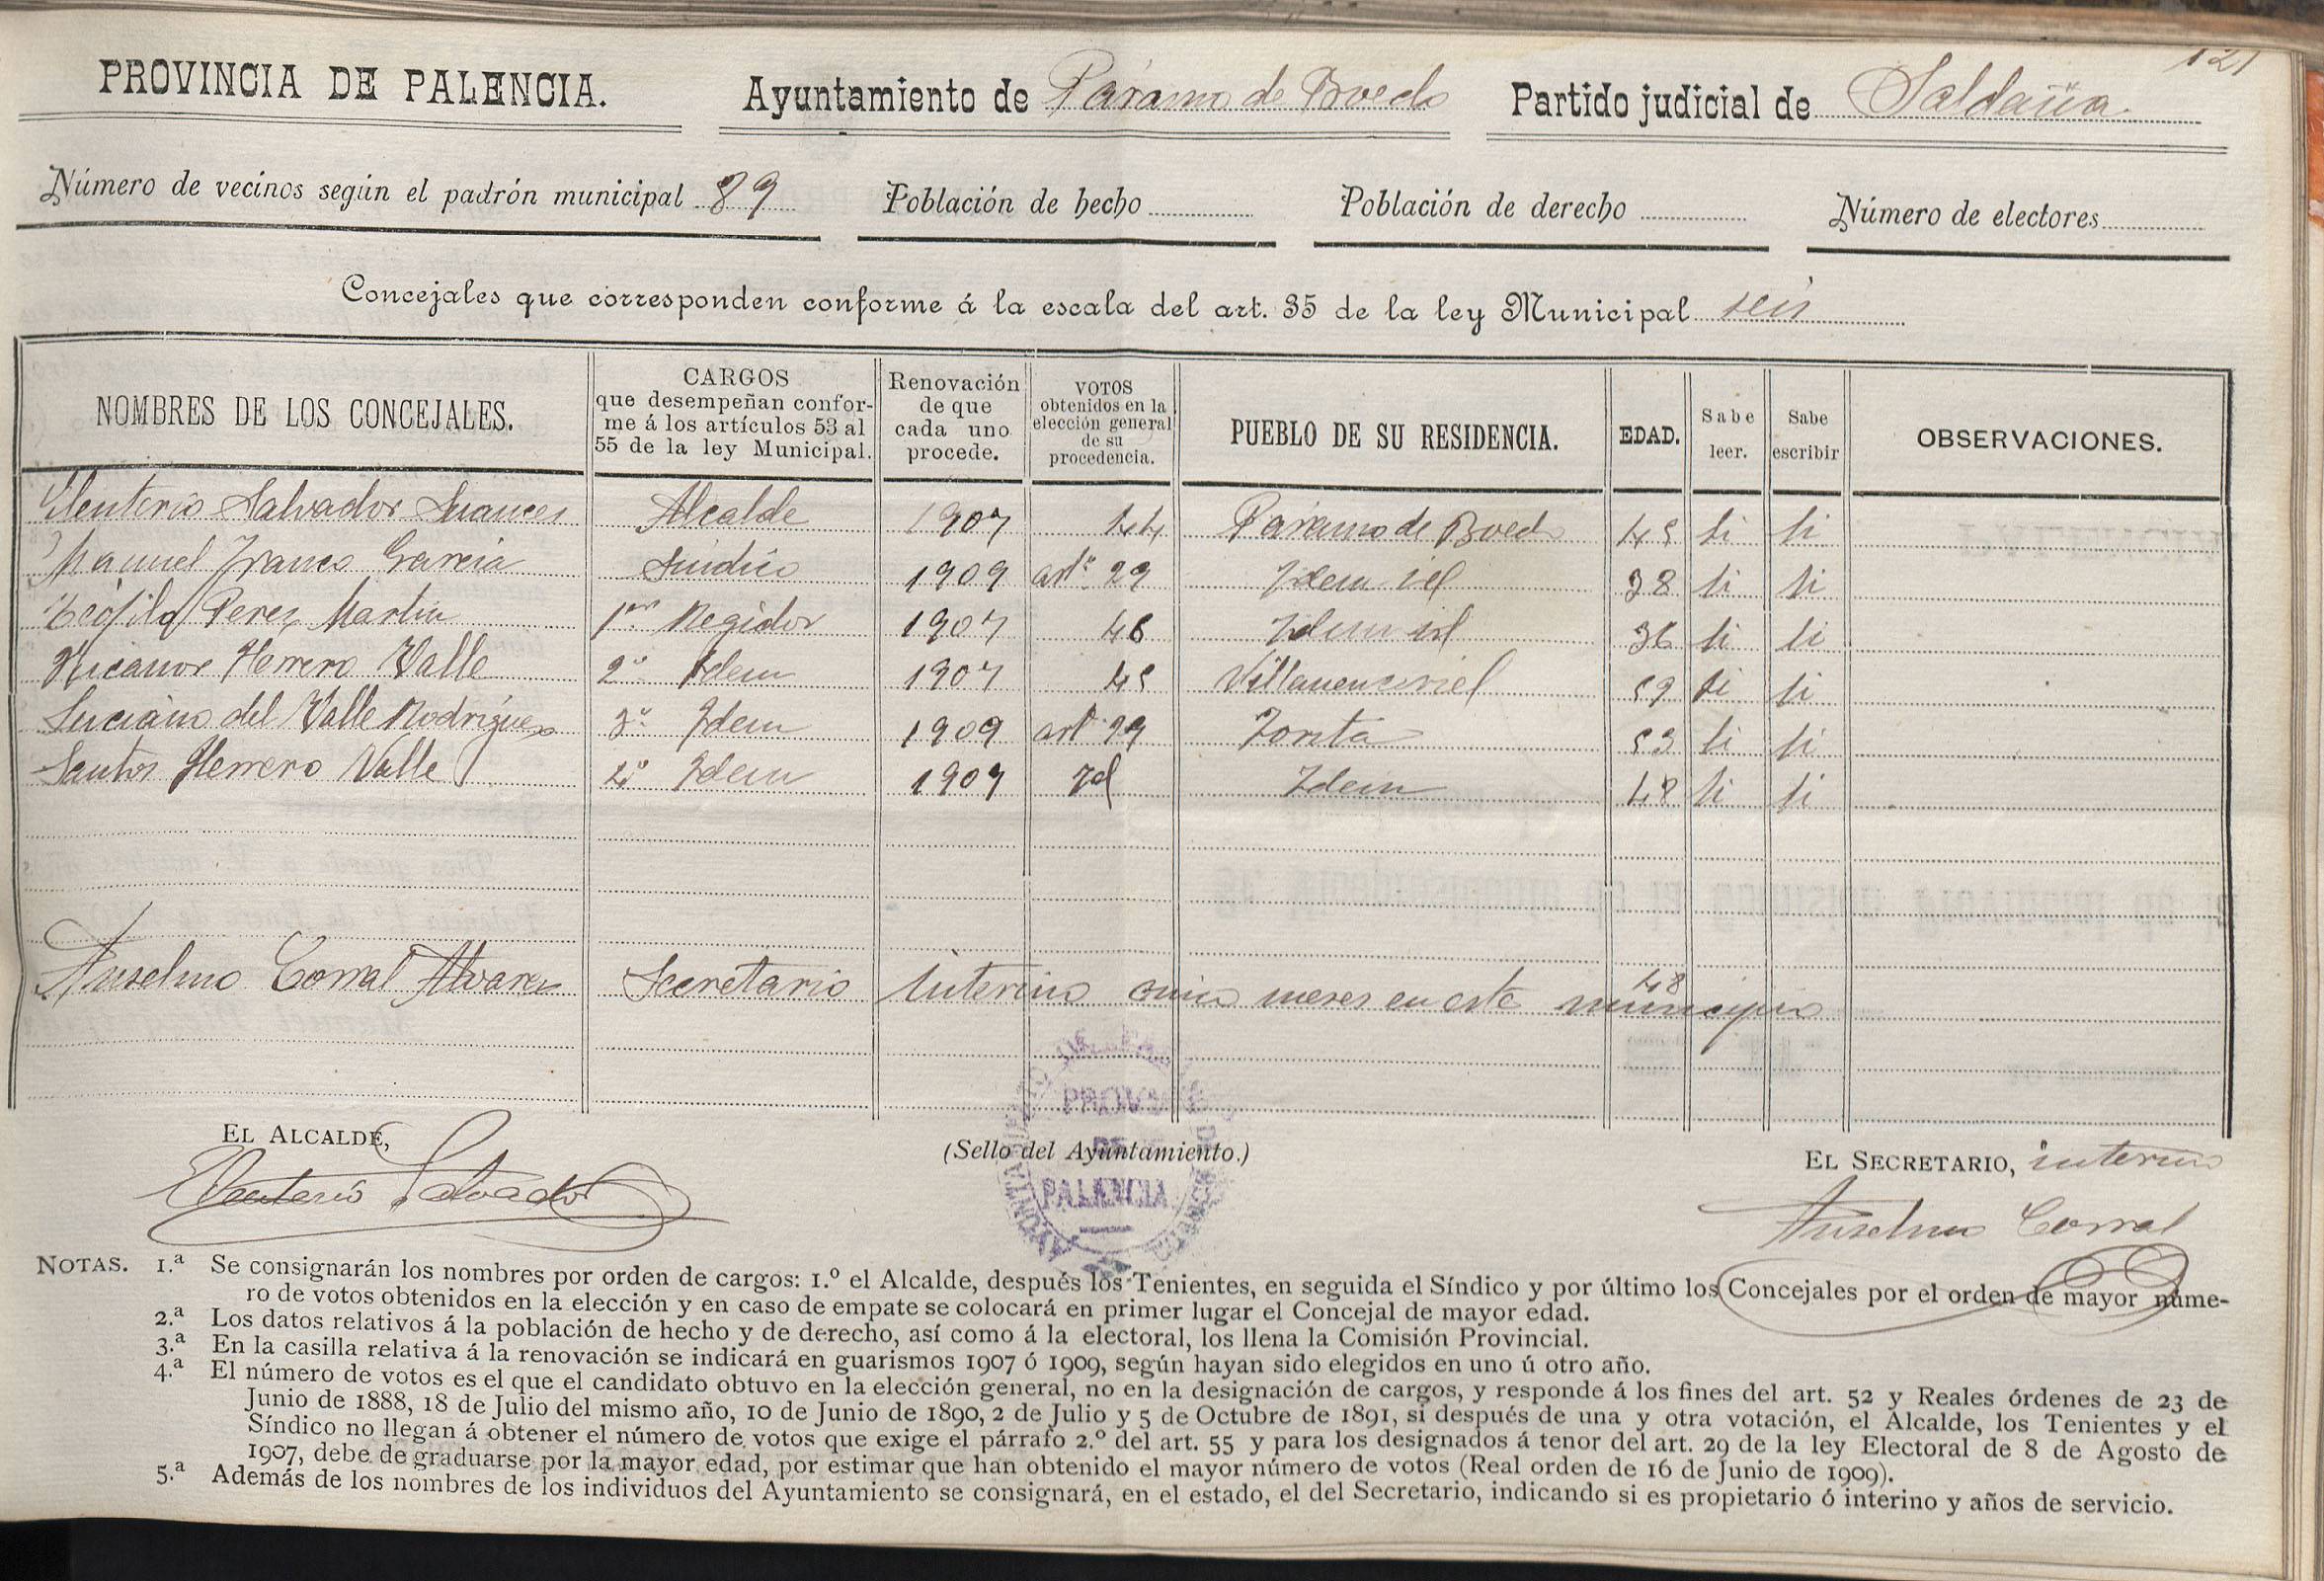 121
PROVINCIA DE PALENCIA. Ayuntamiento de Páramo de Boedo Partido judicial de Saldaña
Número de vecinos según el padrón municipal 89 Población de hecho Población de derecho Número de electores
Concejales que corresponden conforme á la escala del art. 35 de la ley Municipal seis
NOMBRES DE LOS CONCEJALES. CARGOS que desempeñan confor-me á los artículos 53 al 55 de la ley Municipal. Renovación de que cada uno procede. VOTOS obtenidos en la elección general de su procedencia. PUEBLO DE SU RESIDENCIA. EDAD. Sabe leer. Sabe escribir OBSERVACIONES.
Eleuterio Salvador Suances Alcalde 1907 44 Páramo de Boedo 45 si si
Manuel Franco Garcia Sindico 1909 artº 29 Idem id 38 si si
Teófilo Perez Martin 1er Regidor 1907 46 Idem id 36 si si
Nicanor Herrero Valle 2º Idem 1907 45 59 si si
Luciano del Valle Rodriguez 3º Idem 1909 artº 29 Zorita 53 si si
Santos Herrero Valle 4º Idem 1909 Id Idem 48 si si
Anselmo Corral Alvarez Secretario interino cinco meses en este municipio 48
EL ALCALDE, (Sello del Ayuntamiento.) EL SECRETARIO, interino
Eleuterio Salvador Anselmo Corral
AYUNTAMIENTO
PROVINCIA
DE
PALENCIA
NOTAS. 1.ª Se consignarán los nombres por orden de cargos: 1.º el Alcalde, después los Tenientes, en seguida el Síndico y por último los Concejales por el orden de mayor núme-
ro de votos obtenidos en la elección y en caso de empate se colocará en primer lugar el Concejal de mayor edad.
2.ª Los datos relativos á la población de hecho y de derecho, así como á la electoral, los llena la Comisión Provincial.
3.ª En la casilla relativa á la renovación se indicará en guarismos 1907 ó 1909, según hayan sido elegidos en uno ú otro año.
4.ª El número de votos es el que el candidato obtuvo en la elección general, no en la designación de cargos, y responde á los fines del art. 52 y Reales órdenes de 23 de
Junio de 1888, 18 de Julio del mismo año, 10 de Junio de 1890, 2 de Julio y 5 de Octubre de 1891, si después de una y otra votación, el Alcalde, los Tenientes y el
Síndico no llegan á obtener el número de votos que exige el párrafo 2.º del art. 55 y para los designados á tenor del art. 29 de la ley Electoral de 8 de Agosto de
1907, debe de graduarse por la mayor edad, por estimar que han obtenido el mayor número de votos (Real orden de 16 de Junio de 1909).
5.ª Además de los nombres de los individuos del Ayuntamiento se consignará, en el estado, el del Secretario, indicando si es propietario ó interino y años de servicio.